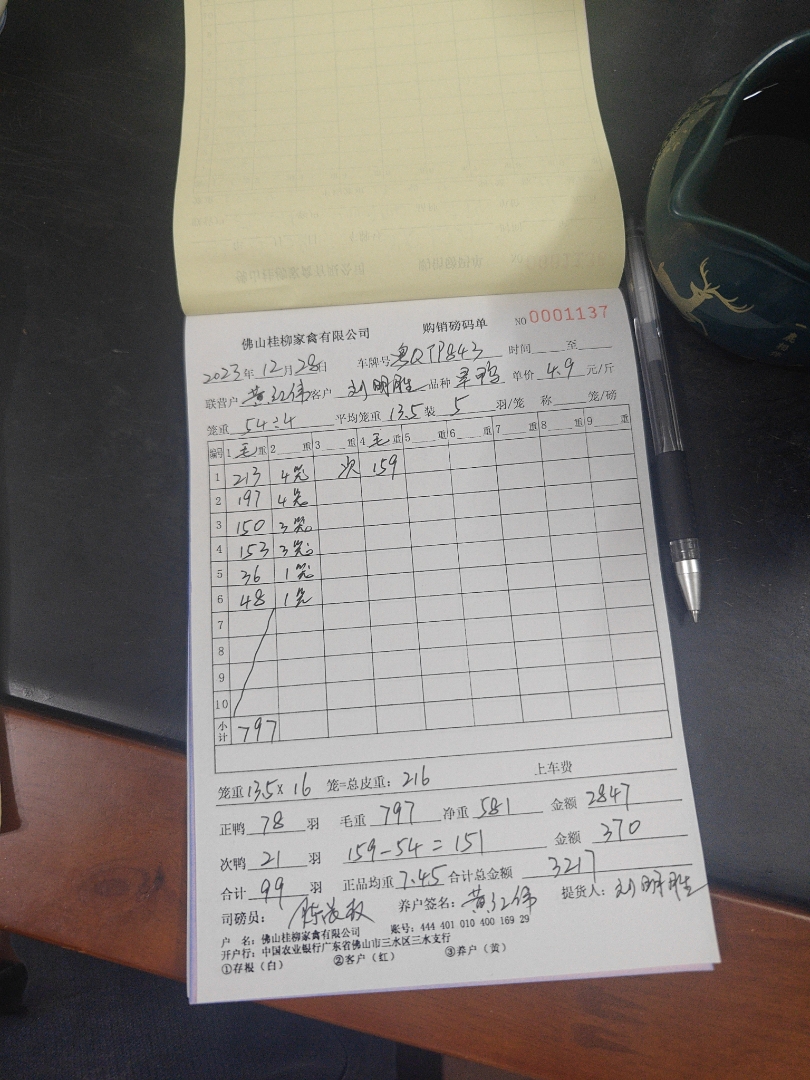 佛山桂柳家禽有限公司 购销磅码单 NO 0001137
2023年12月28日 车牌号粤QTP843 时间 至
联营户 黄红伟 客户 刘明胜 品种 单价 4.9 元/斤
笼重 54÷4 平均笼重 13.5 装 5 羽/笼 称 笼/磅
编号 1 毛重 2 重 3 重 4 毛重 5 重 6 重 7 重 8 重 9 重
1 213 4笼 次 159
2 197 4笼
3 150 3笼
4 153 3笼
5 36 1笼
6 48 1笼
7
8
9
10
小计 797
笼重13.5×16 笼=总皮重：216 上车费
正鸭 78 羽 毛重 797 净重 581 金额 2847
次鸭 21 羽 159-54=151 金额 370
合计 99 羽 正品均重 7.45 合计总金额 3217
司磅员： 养户签名：黄红伟 提货人：刘明胜
户 名：佛山桂柳家禽有限公司 账号：444 401 010 400 169 29
开户行：中国农业银行广东省佛山市三水区三水支行
①存根（白） ②客户（红） ③养户（黄）